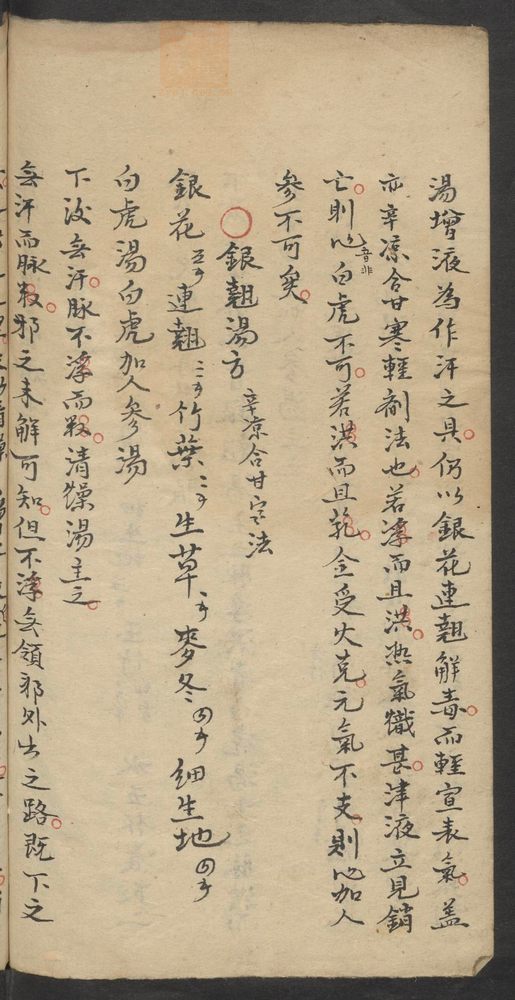 湯增液為作汗之具仍以銀花連翹解毒而輕宣表氣蓋
亦辛凉合甘寒輕劑法也若浮而且洪熱氣熾甚津液立見銷
亡則非白虎不可若洪而且芤金受火克元氣不支則非加人
參不可矣
銀翹湯方 辛凉合甘寒法
銀花五錢連翹三錢竹葉二錢生草一錢麥冬四錢細生地四錢
白虎湯白虎加人參湯
下後無汗脉不浮而數清燥湯主之
無汗而脉數邪之未解可知但不浮無領邪外出之路既下之